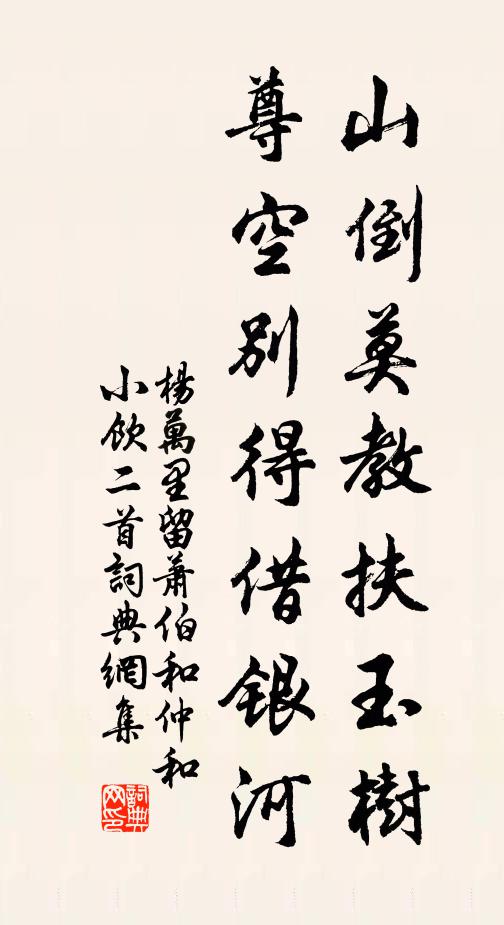 山倒莫教扶玉樹
尊空別得借銀河
楊萬里留蕭伯和仲和
小飲二首詞典網集
詞典
网印